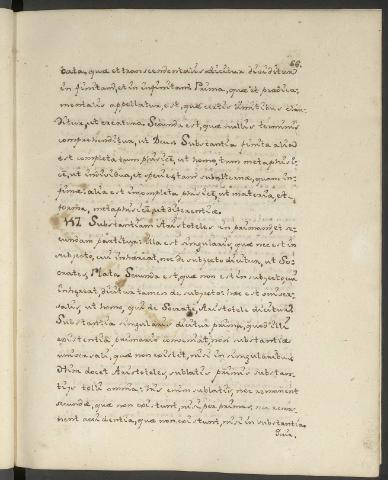 66.
tata, quæ et transcendentalis dicitur dividitur
in finitam, et in infinitam. Prima, quæ et prædica-
mentalis appellatur, est, quæ certis limitibus clau-
ditur, ut creatura. Secunda est, quæ nullis terminis
comprehenditur, ut Deus. Substantia finita alia
est completa tum physicè, ut homo, tum metaphysi-
cè, ut individua, et species tam subalterna, quam in-
fima; alia est incompleta physicè, ut materia, et
forma, metaphysicè, ut differentia.
147. Substantiam Aristoteles in primam, et se-
cundam partitur. Illa est singularis, quæ nec est in
subjecto, cui inhæreat, nec de subjecto dicitur, ut So-
crates, Plato. Secunda est, quæ non est in subjecto, cui
inhæreat, dicitur tamen de subjecto: hæc est univer-
salis, ut homo, qui de Socrate, Aristotele dicitur.
Substantia singularis dicitur prima, quod illi
existentia primario conveniat, non substantiæ
universali, quæ non existit, nisi in singularibus.
Hinc docet Aristoteles, sublatis primis substan-
tijs tolli omnia; his enim sublatis, nec remanent
secundæ, quæ non existunt, nisi per primas, nec rema-
nent accidentia, quæ non existunt, nisi in substantia.